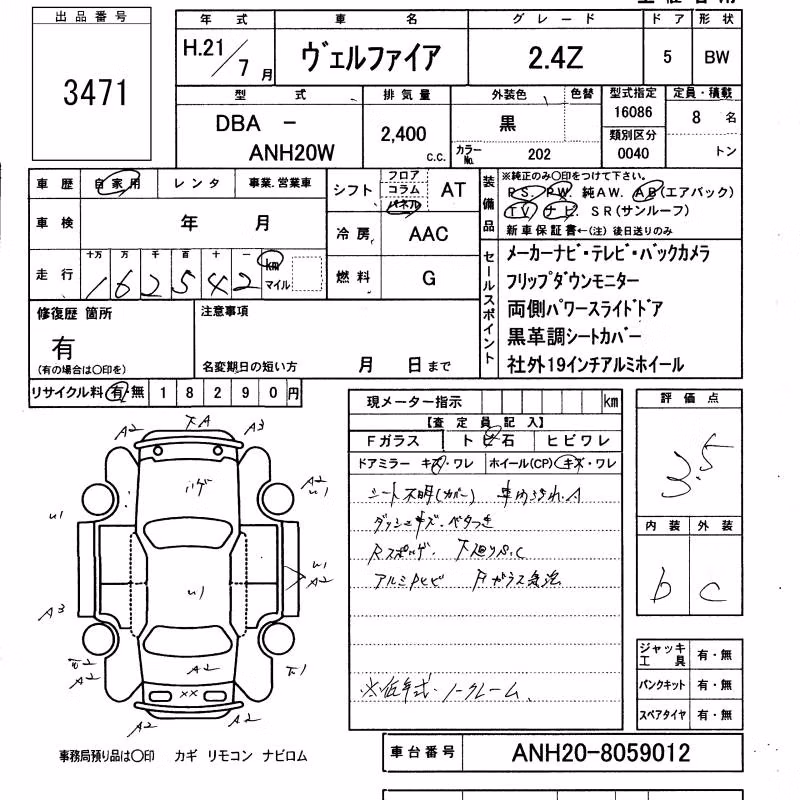 出品番号
3471
年式 車名 グレード ドア 形状
H.21/7月 ヴェルファイア 2.4Z 5 BW
型式 排気量 外装色 色替 型式指定 定員・積載
DBA - ANH20W 2,400 c.c. 黒 16086 8 名
カラーNo. 202 類別区分 0040 トン
車歴 自家用 レンタ 事業.営業車
シフト フロア コラム パネル AT
車検 年 月
冷房 AAC
走行 十万 万 千 百 十 一 km マイル
162542
燃料 G
装備品
※純正のみ○印をつけて下さい。
P.S. P.W. 純A.W. A.B(エアバック)
T.V ナビ S.R(サンルーフ)
新車保証書←(注)後日送りのみ
セールスポイント
メーカーナビ・テレビ・バックカメラ
フリップダウンモニター
両側パワースライドドア
黒革調シートカバー
社外19インチアルミホイール
修復歴 箇所
有
(有の場合は○印を)
注意事項
名変期日の短い方 月 日まで
リサイクル料 有・無 18290円
現メーター指示 km
【査定員記入】
Fガラス トビ石 ヒビワレ
ドアミラー キズ・ワレ ホイール(CP) キズ・ワレ
シート不明(カバー)
ダッシュキズ・ベタつき
下廻りS.C
Fガラス
※低年式・ノークレーム
評価点
3.5
内装 外装
b c
ジャッキ 工具 有・無
パンクキット 有・無
スペアタイヤ 有・無
A2 下A A3
ハゲ
A2
U1
U1
U1
A2
U1
A3
A2
A2
××
A2 A2
事務局預り品は○印 カギ リモコン ナビロム
車台番号 ANH20-8059012